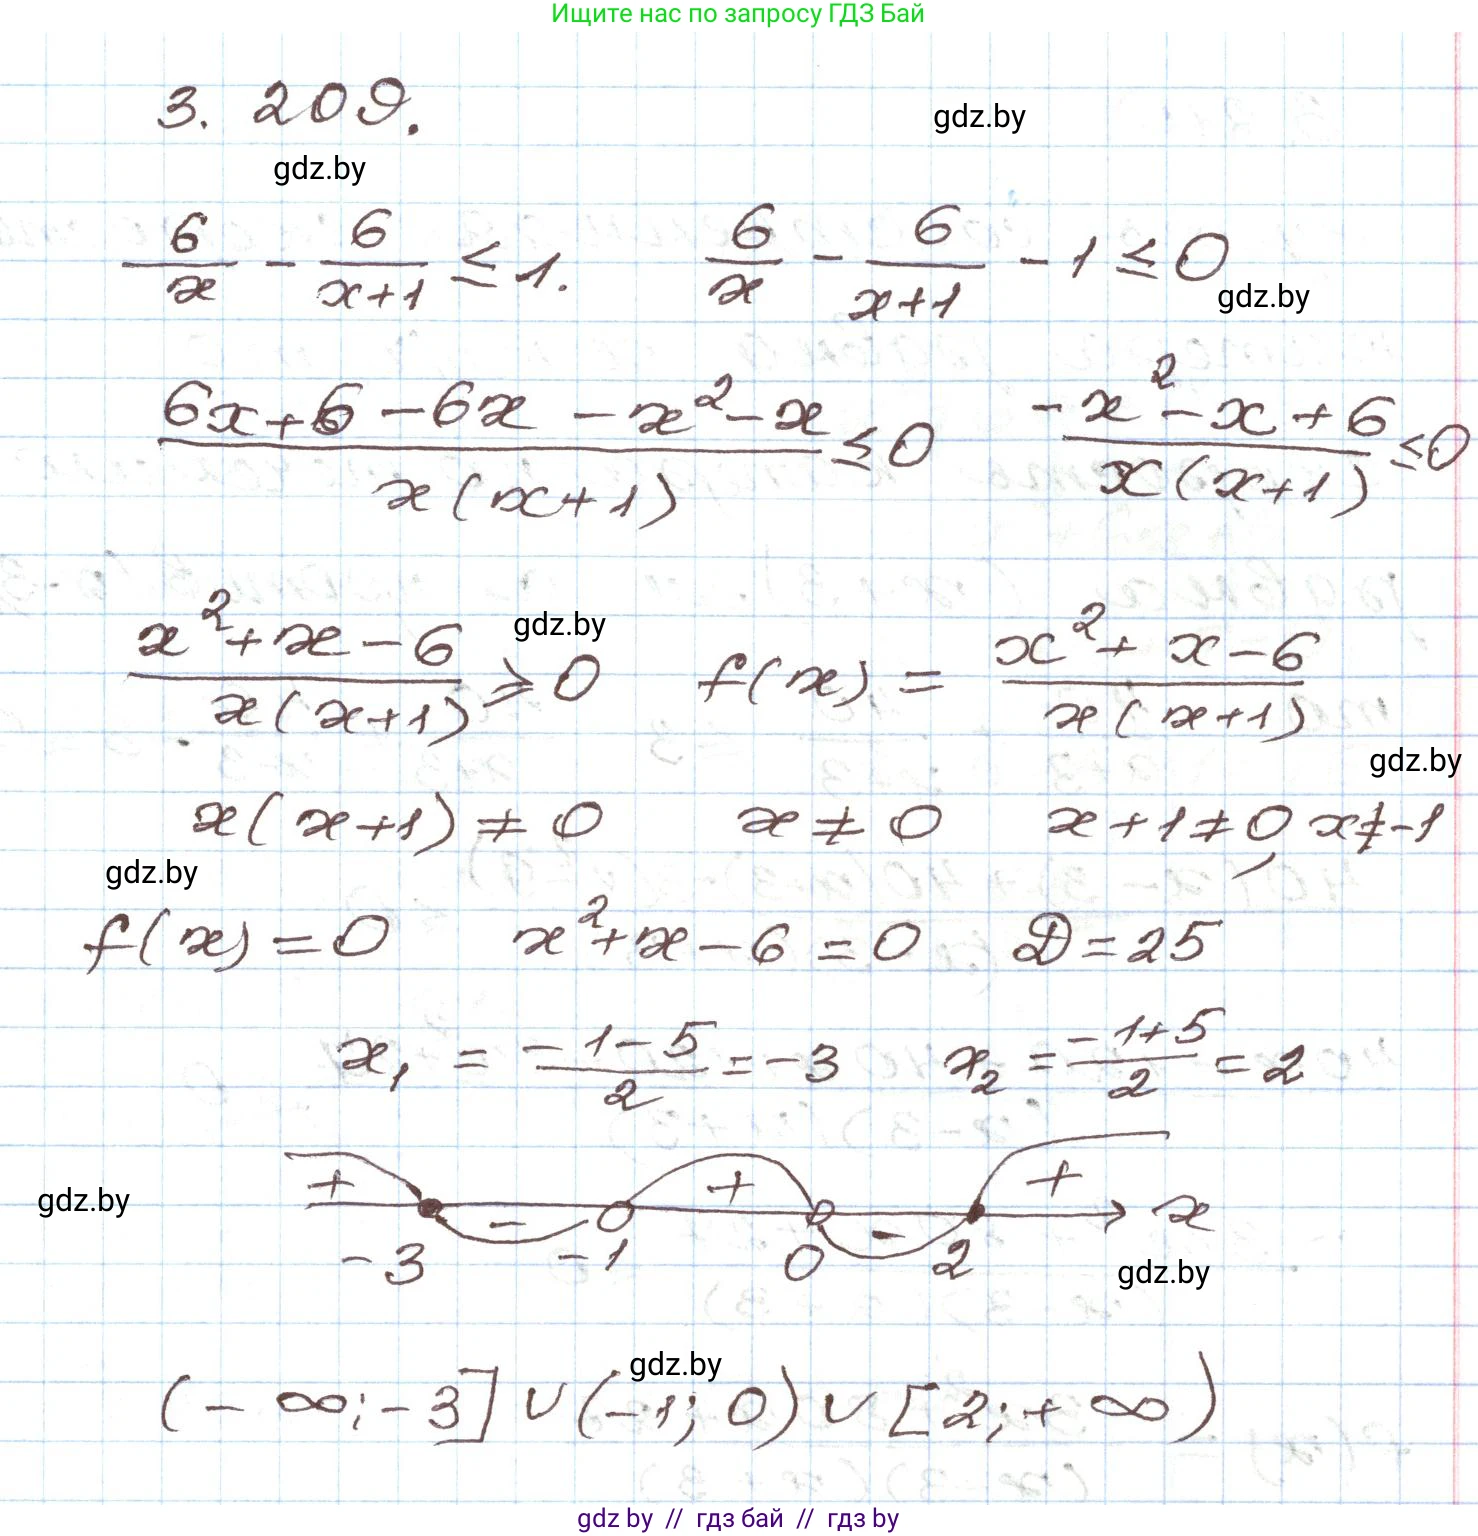 Ищите нас по запросу ГДЗ Бай
3. 209.
gdz.by
gdz.by
6/x - 6/(x+1) ≤ 1. 6/x - 6/(x+1) - 1 ≤ 0
gdz.by
(6x+6-6x-x²-x)/(x(x+1)) ≤ 0 (-x²-x+6)/(x(x+1)) ≤ 0
gdz.by
(x²+x-6)/(x(x+1)) ⩾ 0 f(x) = (x²+x-6)/(x(x+1))
gdz.by
x(x+1) ≠ 0 x ≠ 0 x+1≠0, x≠-1
gdz.by
f(x) = 0 x²+x-6=0 D=25
x₁ = (-1-5)/2 = -3 x₂ = (-1+5)/2 = 2
+ - + - + x
gdz.by
-3 -1 0 2
gdz.by
gdz.by
(-∞;-3] ∪ (-1;0) ∪ [2;+∞)
gdz.by // гдз бай // гдз by